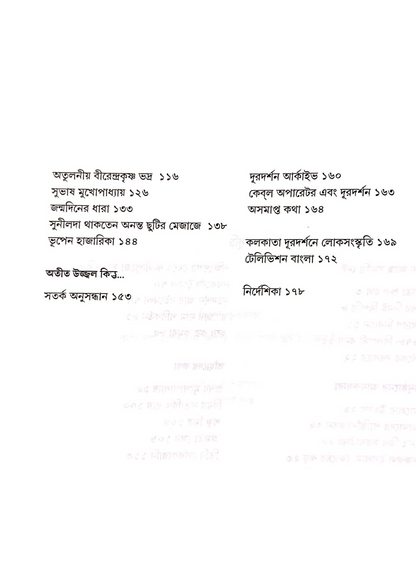 অতুলনীয় বীরেন্দ্রকৃষ্ণ ভদ্র ১১৬
সুভাষ মুখোপাধ্যায় ১২৬
জন্মদিনের ধারা ১৩৩
সুনীলদা থাকতেন অনন্ত ছুটির মেজাজে ১৩৮
ভূপেন হাজারিকা ১৪৪
অতীত উজ্জ্বল কিন্তু...
সতর্ক অনুসন্ধান ১৫৩
দূরদর্শন আর্কাইভ ১৬০
কেব্‌ল অপারেটর এবং দূরদর্শন ১৬৩
অসমাপ্ত কথা ১৬৪
কলকাতা দূরদর্শনে লোকসংস্কৃতি ১৬৯
টেলিভিশন বাংলা ১৭২
নির্দেশিকা ১৭৮